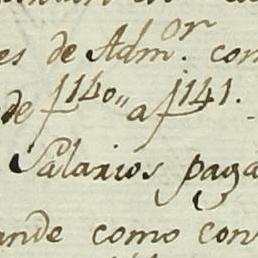 es de Adm.or con
de f 140,, a f 141.
Salarios paga
ande como con